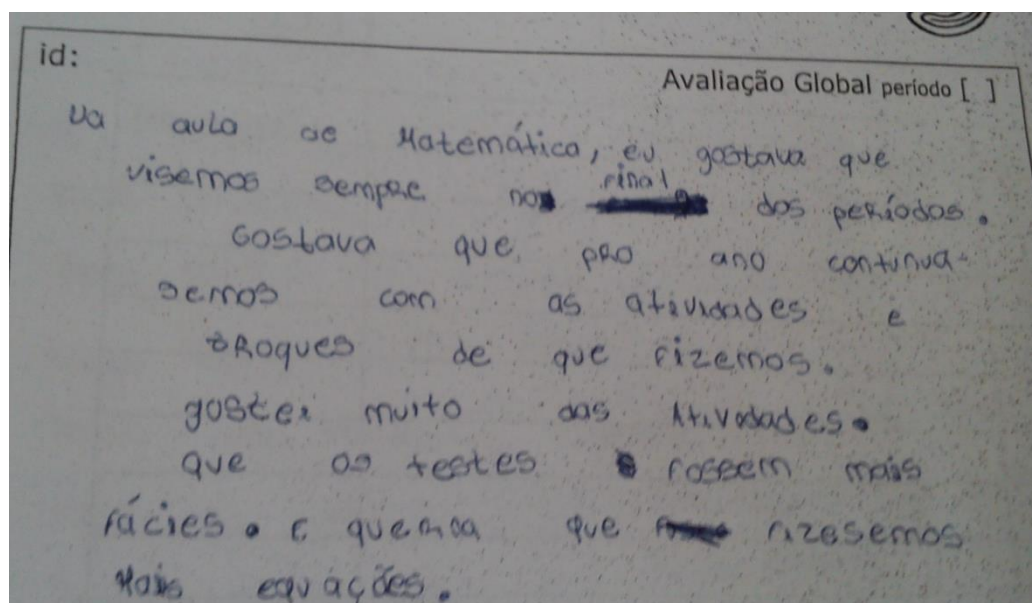 id:
Avaliação Global período [ ]
Na aula de Matemática, eu gostava que
visemos sempre no final dos períodos.
Gostava que pro ano continua-
semos com as atividades e
troques de que fizemos.
gostei muito das Atividades.
que os testes fossem mais
fácies. E queria que fizesemos
Mais equações.